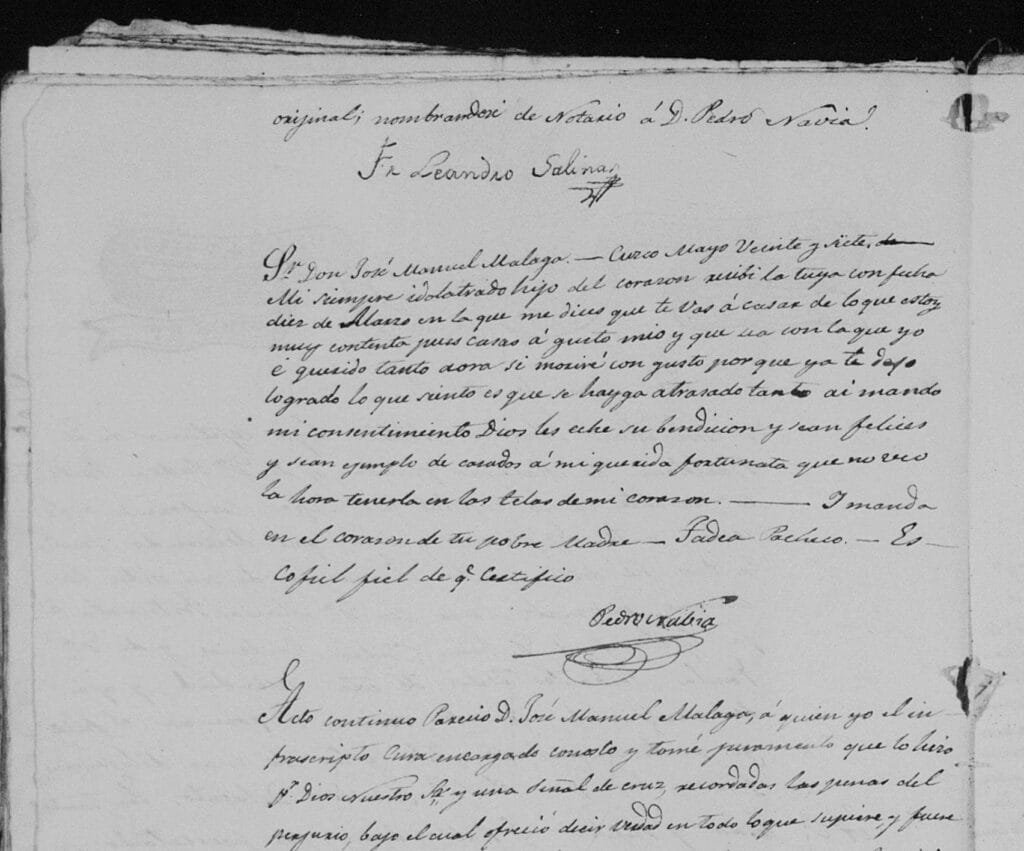 orijinal; nombrandose de Notario á D. Pedro Navia.
Fr. Leandro Salinas
Sr. Don José Manuel Malaga. — Cuzco Mayo Veinte y siete, de
Mi siempre idolatrado hijo del corazon recibi la tuya con fecha
diez de Marzo en la que me dices que te vas á casar de lo que estoy
muy contenta pues casas á gusto mio y que sea con la que yo
é querido tanto aora si moriré con gusto por que ya te dejo
logrado lo que siento es que se hayga atrasado tanto ai mando
mi consentimiento Dios les eche su bendicion y sean felices
y sean ejemplo de casados á mi querida fortunata que no veo
la hora tenerla en las telas de mi corazon. — I manda
en el corazon de tu pobre Madre — Tadea Pacheco. — Es
Copiel fiel de q.e Certifico
Pedro Nabia
Acto continuo Parecio D. José Manuel Malaga, á quien yo el in
frascripto Cura encargado conosco y tomé juramento que lo hizo
p.r Dios Nuestro Sr. y una Señal de cruz, recordadas las penas del
perjurio, bajo el cual ofreció decir verdad en todo lo que supiere, y fuere